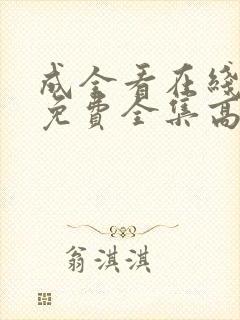 成全看在线
免费全集高
翁淇淇